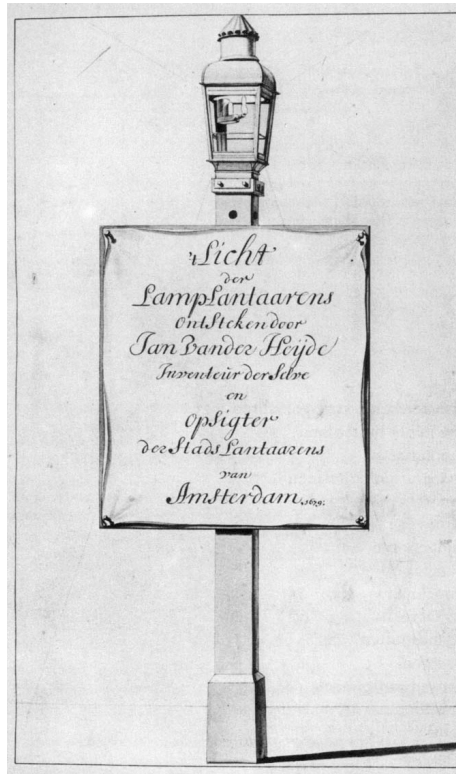 't Licht
der
LampLantaarens
OntSteken door
Jan Vander Heijde
Inventeur der Selve
en
OpSigter
der Stads Lantaarens
van
Amsterdam. 1679.